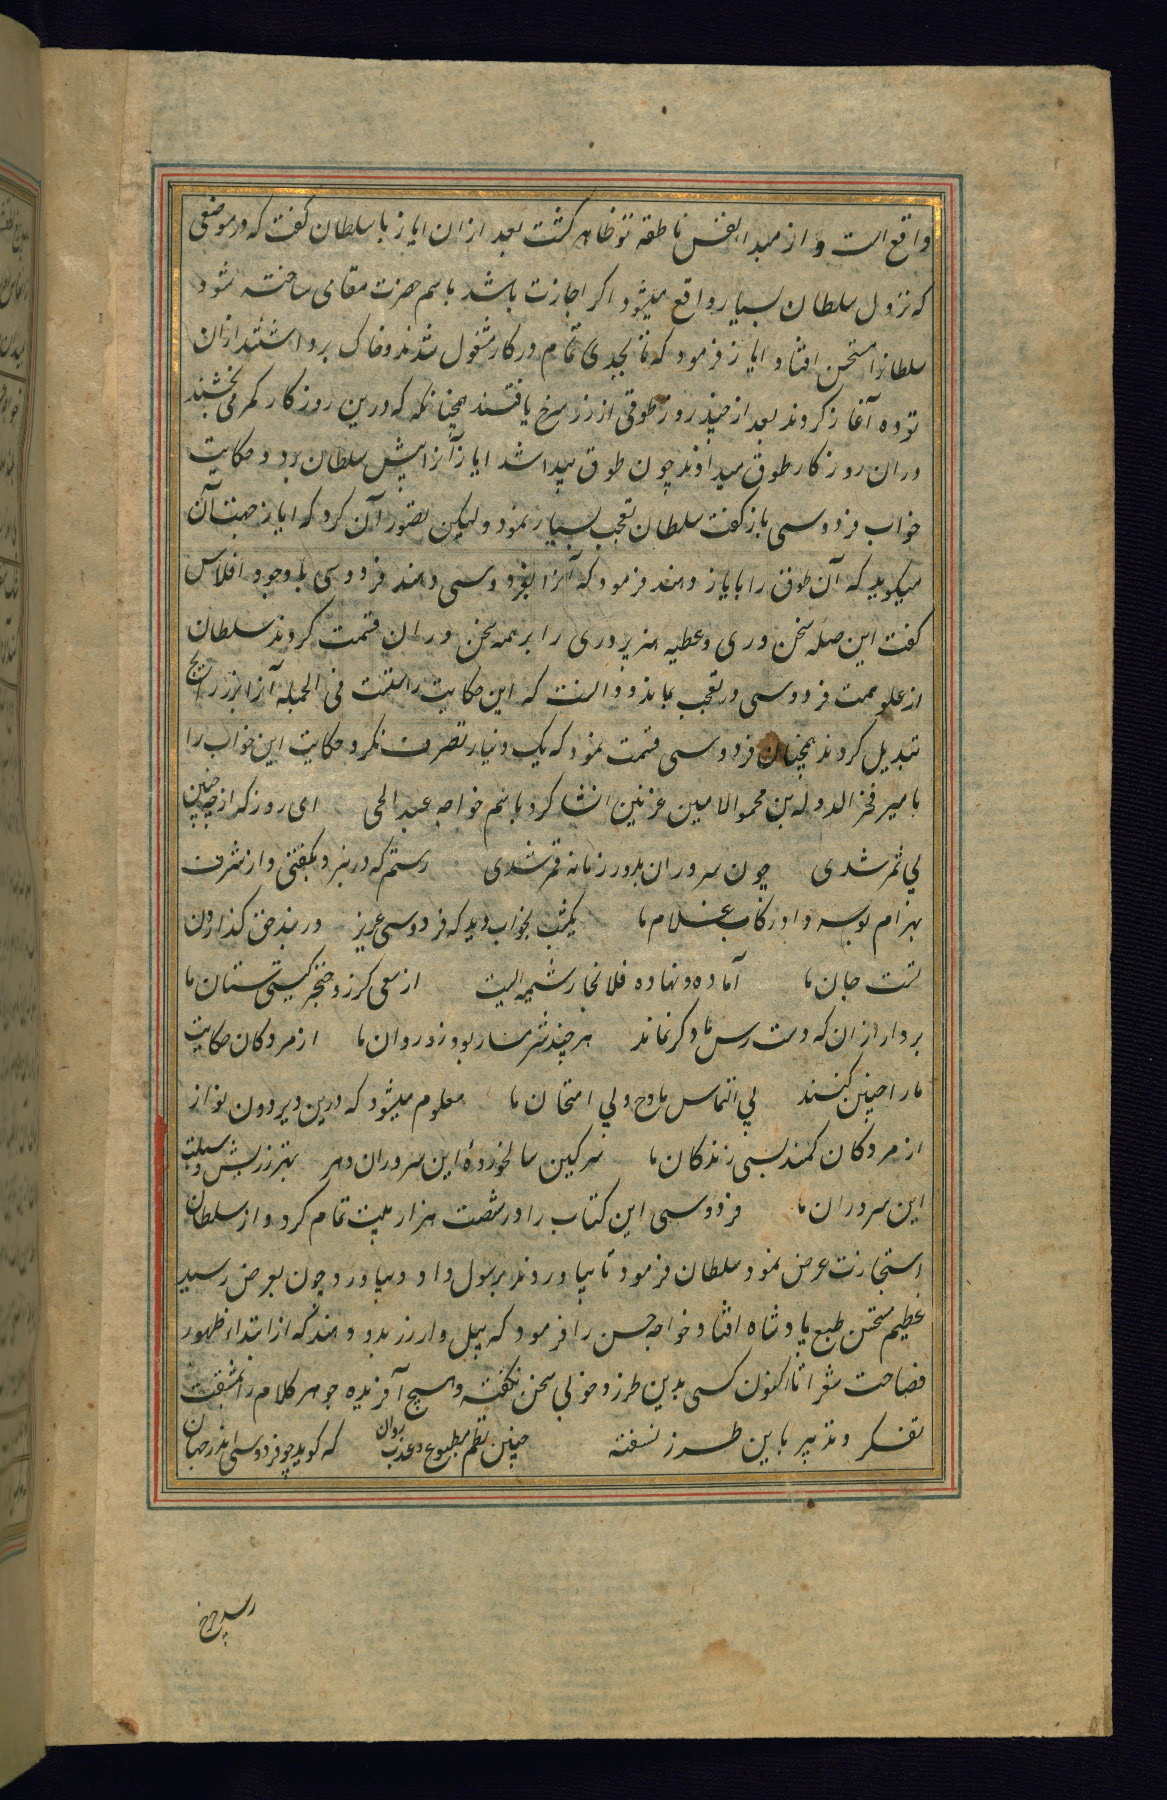 واقع است و از مبدا نفس ناطقه تو ظاهر گشت بعد ازان ایاز با سلطان گفت که در موضعی
که نزول سلطان بسیار واقع میشود اگر اجازت باشد باسم حضرت مقامی ساخته شود
سلطانرا مستحسن افتاد ایاز فرمود که تا بجدی تمام در کار مشغول شدند و خاک برداشتند ازان
توده آغاز کردند بعد از چند روز طوقی از زر سرخ یافتند همچنانکه که درین روزگار کمر می بخشند
دران روزگار طوق میدادند چون طوق پیدا شد ایاز آنرا پیش سلطان برد و حکایت
خواب فردوسی باز گفت سلطان تعجب بسیار نمود ولیکن تصور آن کرد که ایاز جهت آن
میگوید که آن طوق را بایاز دهند فرمود که آنرا بفردوسی دهند فردوسی با وجود افلاس
گفت این صله سخن وری و عطیه هنر پروری را بر همه سخن وران قسمت کردند سلطان
از علو همت فردوسی در تعجب بماند و دانست که این حکایت راستست فی الجمله آنرا بزر رایج
تبدیل کردند همچنان فردوسی قسمت نمود که یک دینار تصرف نکرد حکایت این خواب را
بامیر فخر الدوله بن محمود الامین غزنین انشا کرد باسم خواجه عبد الحی ای روزگار از چه چنین
بی ثمر شدی چون سروران بدور زمانه قمر شدی رستم که در نبرد بگفتی و از شرف
بهرام بوسه داد رکاب غلام ما یکشب بخواب دید که فردوسی عزیز در بند حق گذاردن
تست جان ما آماده و نهاده فلانجا رشیمه ایست از سعی گرز و خنجر گیتی ستان ما
بردار ازان که دست رس ما دگر نماند هر چند شرمسار بود زو روان ما از مردگان حکایت
ما را چنین کنند بی التماس مادح و بی امتحان ما معلوم میشود که درین دیر دون نواز
از مردگان کمند بسی زندگان ما سرگین سالخوردهٔ این سروران دهر بهتر ز ریش و سبلت
این سروران ما فردوسی این کتاب را در شصت هزار بیت تمام کرد و از سلطان
استجازت عرض نمود سلطان فرمود تا بیاوردند برسول داد و بیاورد چون بعرض رسید
عظیم مستحسن طبع پادشاه افتاد خواجه حسن را فرمود که پیل وار زر بدو دهند که از ابتداء ظهور
فصاحت شعرا تا اکنون کسی بدین طرز و خوبی سخن نگفته و هیچ آفریده جوهر کلام را بمثقب
تفکر و تدبیر باین طرز نسفته چنین نظم مطبوع و عذب روان که گوید چو فردوسی اندر جهان